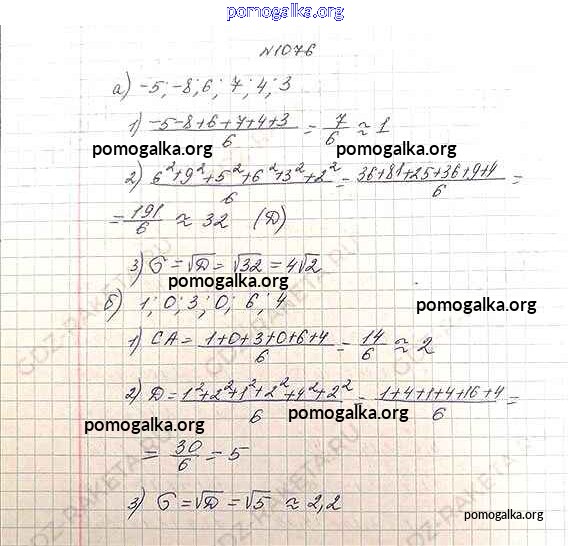 pomogalka.org
N1076
а) -5; -8; 6; 7; 4; 3
1) (-5-8+6+7+4+3)/6 = 7/6 ≈ 1
pomogalka.org pomogalka.org
2) (6²+9²+5²+6²+3²+2²)/6 = (36+81+25+36+9+4)/6 =
= 191/6 ≈ 32 (D)
3) σ = √D = √32 = 4√2
pomogalka.org
б) 1; 0; 3; 0; 6; 4
pomogalka.org
1) СА = (1+0+3+0+6+4)/6 = 14/6 ≈ 2
2) D = (1²+2²+1²+2²+4²+2²)/6 = (1+4+1+4+16+4)/6 =
pomogalka.org pomogalka.org
= 30/6 = 5
3) σ = √D = √5 ≈ 2,2
pomogalka.org
GDZ-RAKETA.RU